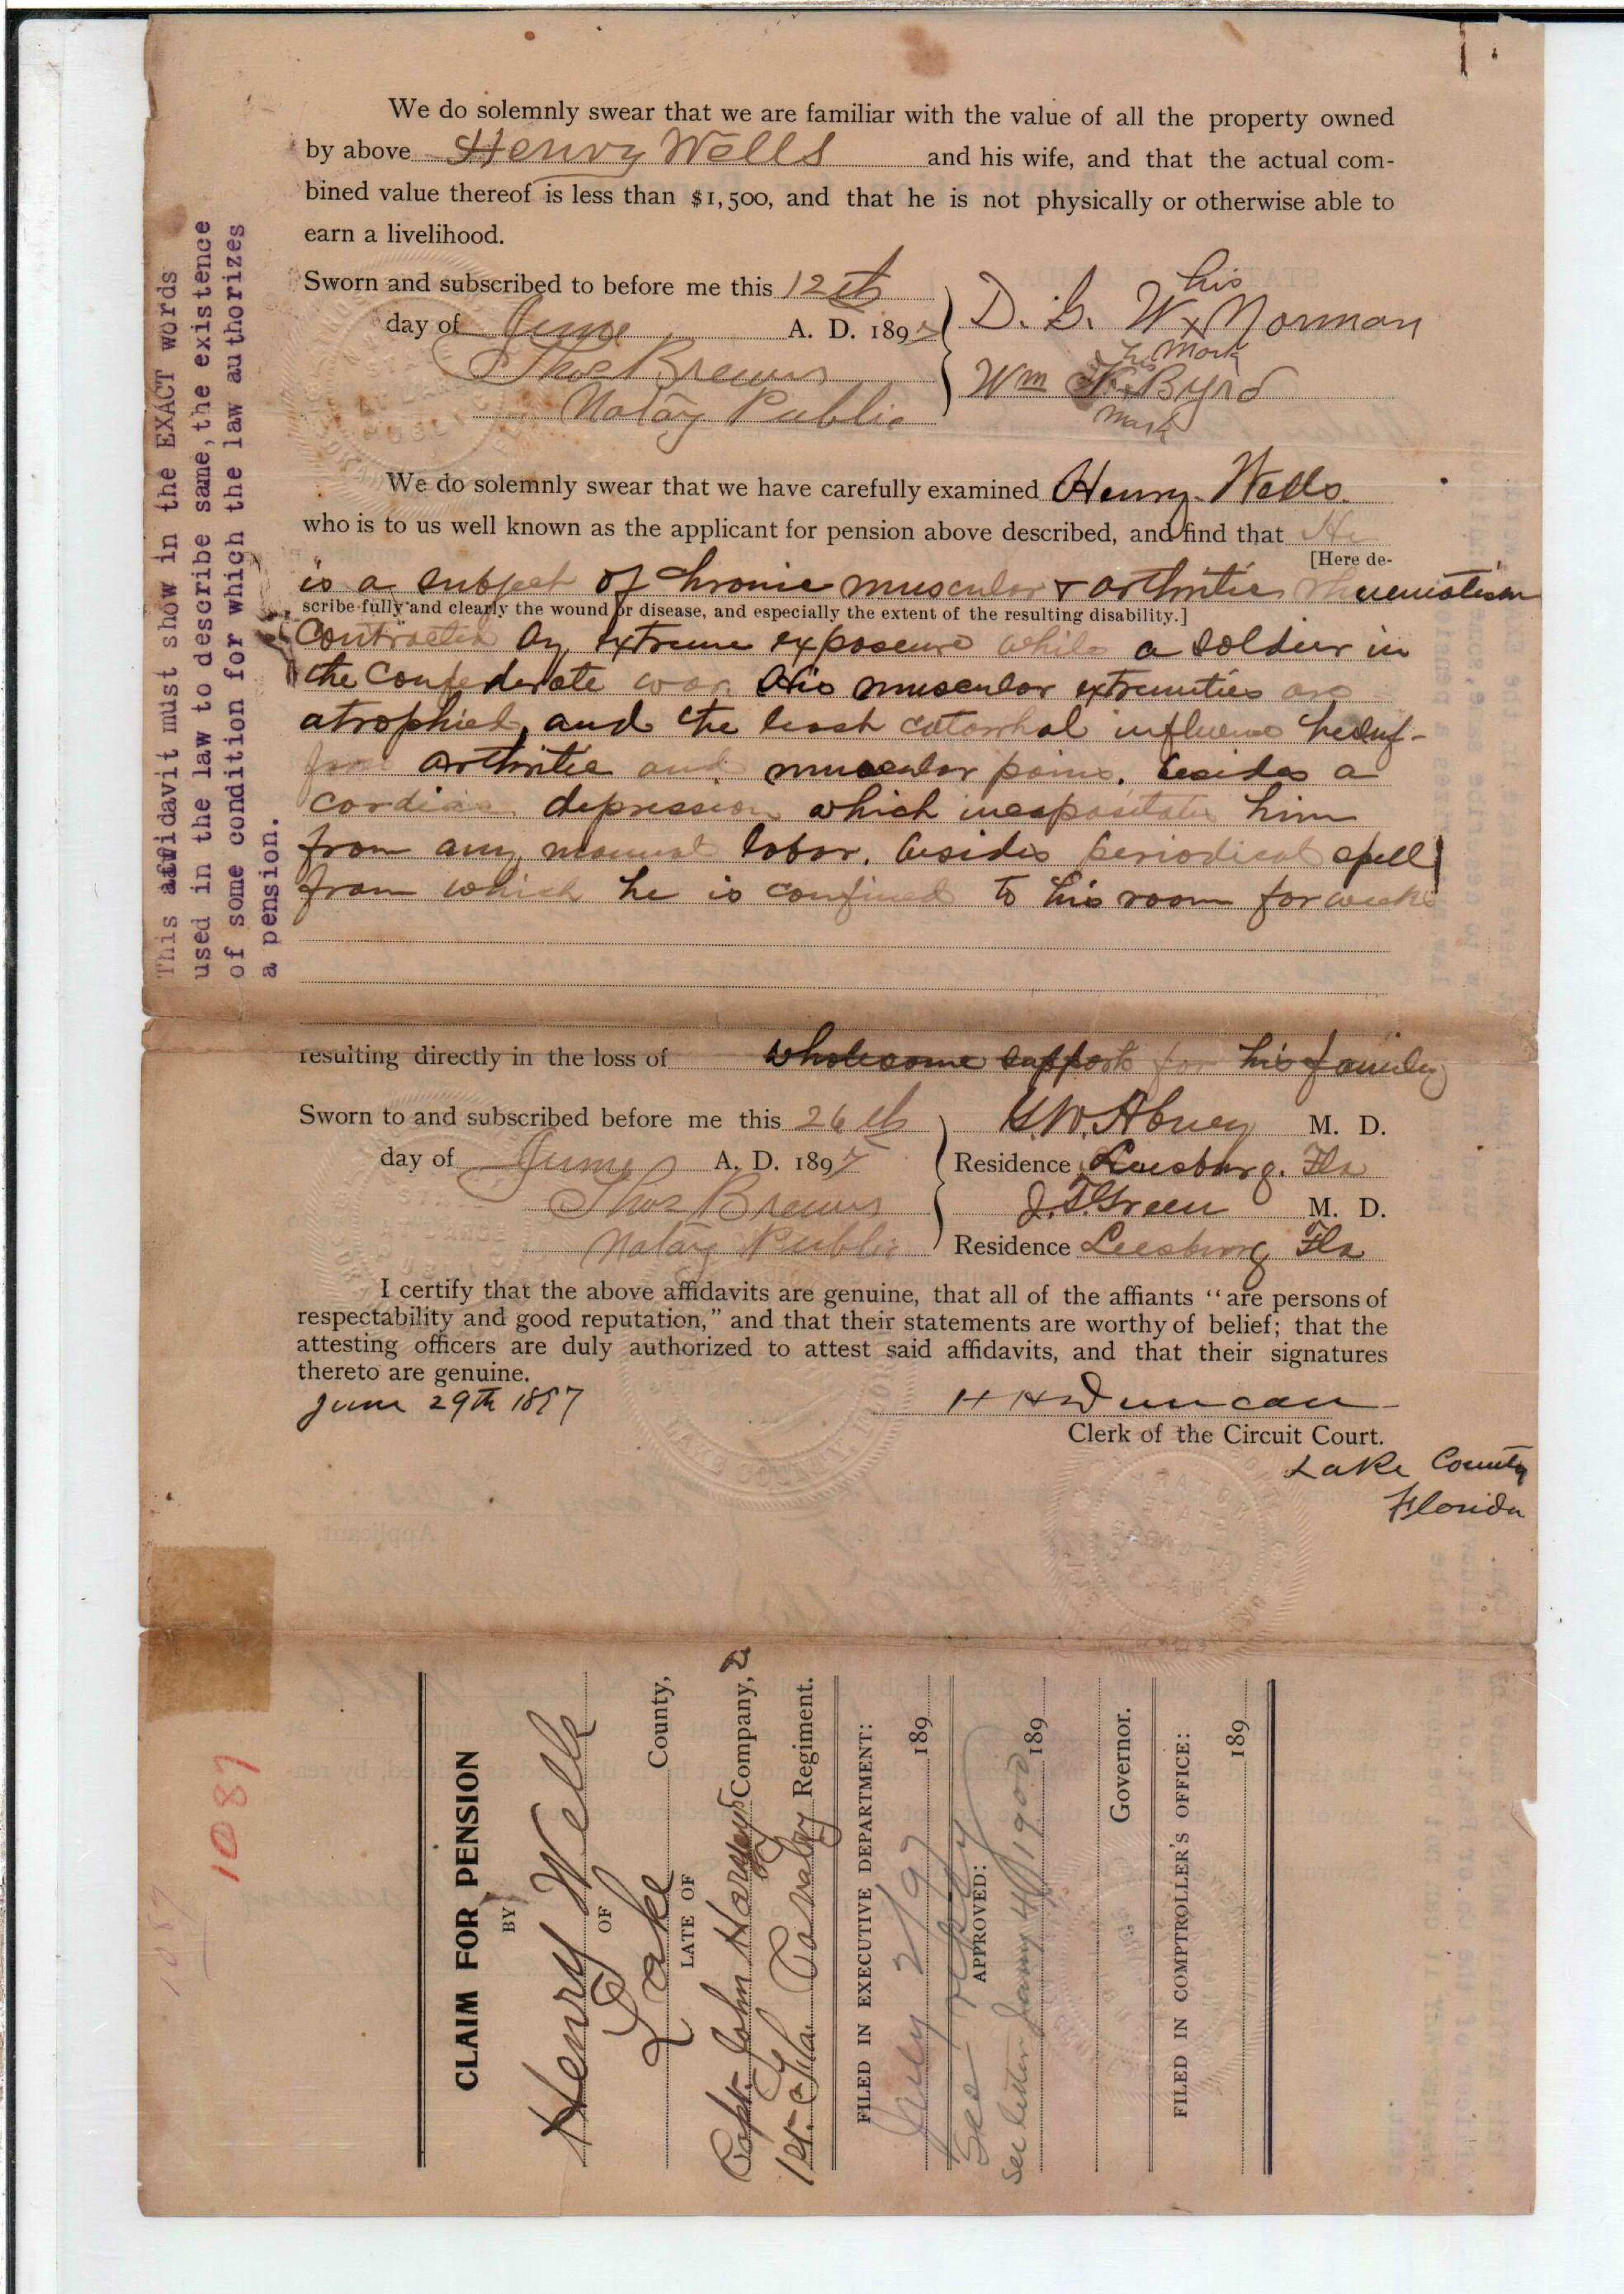 We do solemnly swear that we are familiar with the value of all the property owned
by above Henry Wells and his wife, and that the actual com-
bined value thereof is less than $1,500, and that he is not physically or otherwise able to
earn a livelihood.
Sworn and subscribed to before me this 12th
day of June A. D. 1897
Thos Brewer
Notary Public
his
D. G. W x Norman
mark
his
Wm x Byrd
mark
We do solemnly swear that we have carefully examined Henry Wells.
who is to us well known as the applicant for pension above described, and find that He
[Here de-
is a subject of chronic muscular & arthritic rheumatism
scribe fully and clearly the wound or disease, and especially the extent of the resulting disability.]
contracted by extreme exposure while a soldier in
the Confederate war. His muscular extremities are
atrophied, and the least catarrhal influence he suf-
fers arthritic and muscular pains. besides a
cordiac depression which incapasitates him
from any manual labor. besides periodical spells
from which he is confined to his room for weeks
resulting directly in the loss of wholesome support for his family
Sworn to and subscribed before me this 26th
day of June A. D. 1897
Thos Brewer
Notary Public
G.W. Abney M. D.
Residence Leesburg. Fla
J.T. Green M. D.
Residence Leesburg Fla
I certify that the above affidavits are genuine, that all of the affiants "are persons of
respectability and good reputation," and that their statements are worthy of belief; that the
attesting officers are duly authorized to attest said affidavits, and that their signatures
thereto are genuine.
June 29th 1897
H H Duncan
Clerk of the Circuit Court.
Lake County
Florida
This affidavit must show in the EXACT words
used in the law to describe same, the existence
of some condition for which the law authorizes
a pension.
1087
1087
CLAIM FOR PENSION
BY
Henry Wells
OF
Lake County,
LATE OF
Capt. John Harvey's Company, D
1st. Fla. Cavalry Regiment.
FILED IN EXECUTIVE DEPARTMENT:
July 2/97 189
See reply
APPROVED:
See letter Jany 4/1900 189
Governor.
FILED IN COMPTROLLER'S OFFICE:
189